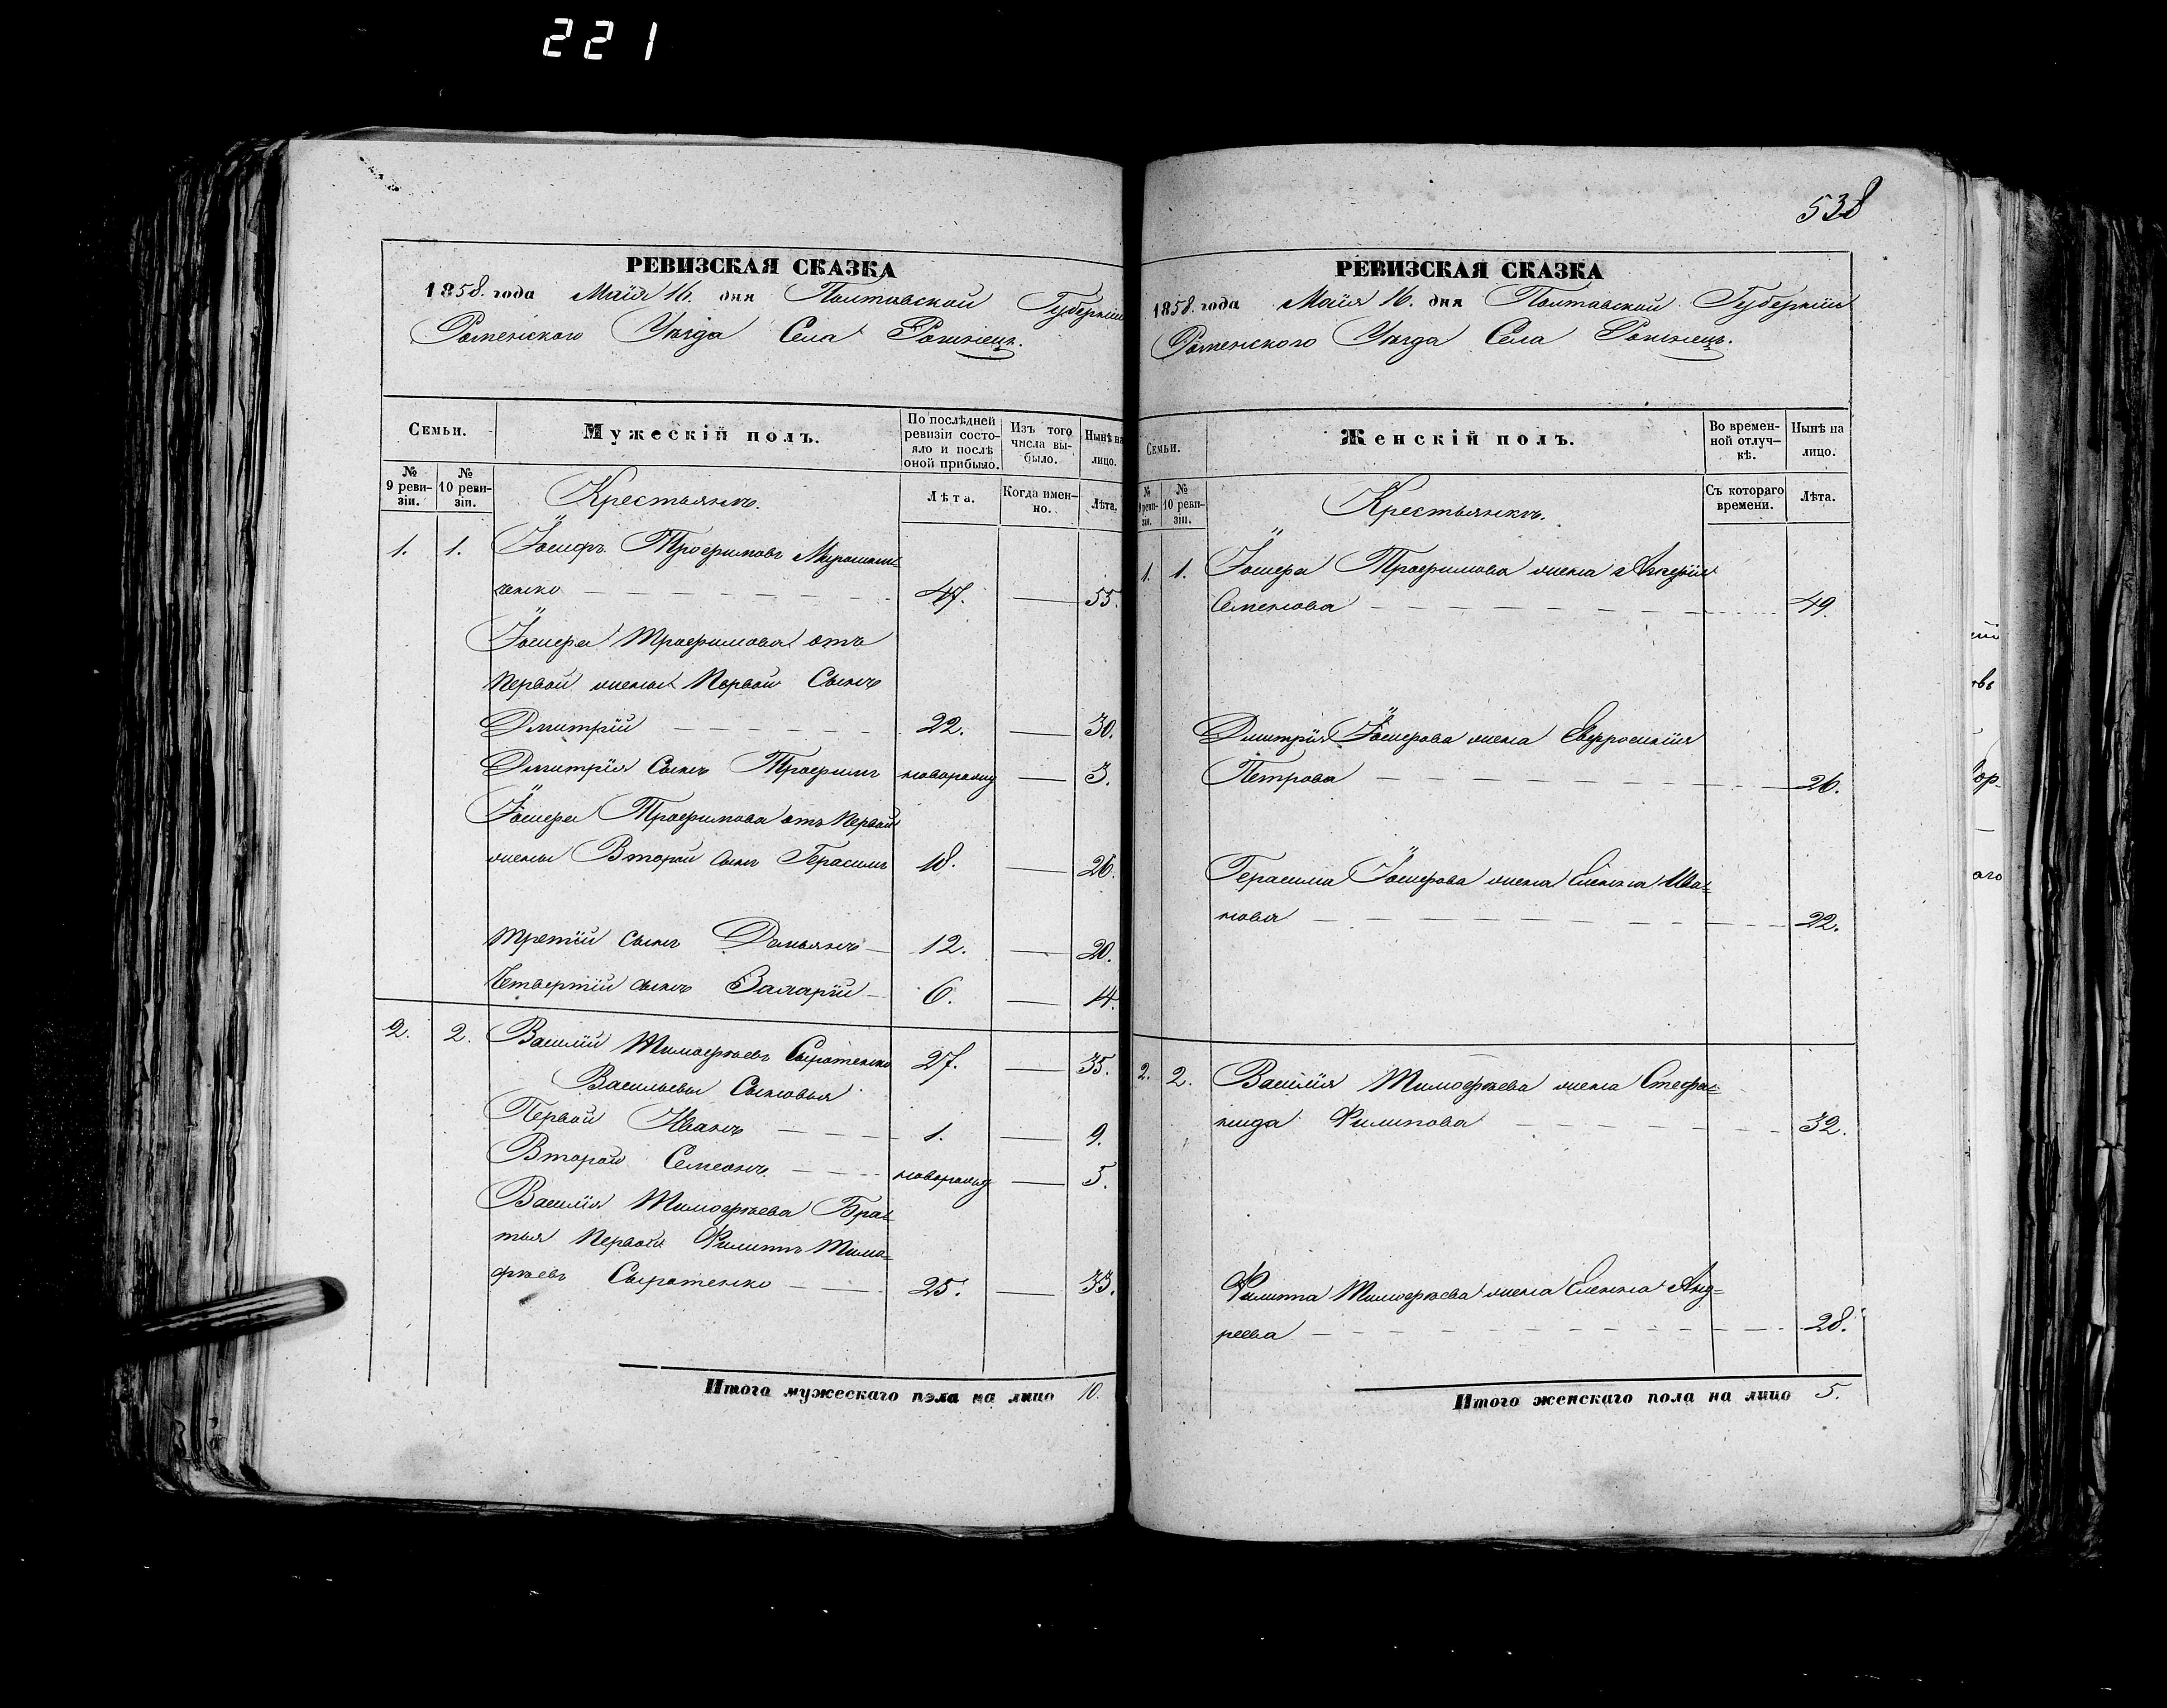 221
РЕВИЗСКАЯ СКАЗКА
1858. года Маія 16. дня Полтавской Губерніи
Роменского Уѣзда Села
Семьи.
Мужескій полъ.
По послѣдней ревизіи состо-
яло и послѣ оной прибыло.
Изъ того числа вы-
было.
Нынѣ на лицо.
№ 9 реви-
зіи.
№ 10 реви-
зіи.
Крестьянъ.
Лѣта.
Когда имен-
но.
Лѣта.
1. 1. Іосифъ Трофимовъ Мирошни-
ченко 47. 55.
Іосифа Трофимова отъ
Первой жены Первой Сынъ
Дмитрій 22. 30.
Дмитрія Сынъ Трофимъ новорожд 3.
Іосифа Трофимова отъ Первой
жены Второй сынъ Герасимъ 18. 26.
третій сынъ Демьянъ 12. 20.
Четвертій сынъ 6. 14.
2. 2. Василій Тимофѣевъ Сыротенко 27. 35.
Васильевы Сыновья
Первой Иванъ 1. 9.
Второй Семеонъ новорожд 5.
Василія Тимофѣева Бра-
тья Первой Филиппъ Тимо-
фѣевъ Сыротенко 25. 33.
Итого мужескаго пола на лицо 10.
538
РЕВИЗСКАЯ СКАЗКА
1858. года Маія 16. дня Полтавской Губерніи
Роменского Уѣзда Села
Семьи.
Женскій полъ.
Во времен-
ной отлуч-
кѣ.
Нынѣ на лицо.
№ 9 реви-
зіи.
№ 10 реви-
зіи.
Крестьянкъ.
Съ котораго времени.
Лѣта.
1. 1. Іосифа Трофимова жена
Семенова 49.
Дмитрія Іосифова жена Евфросинія
Петрова 26.
Герасима Іосифова жена Елена Ива-
нова 22.
2. 2. Василія Тимофѣева жена Стефа-
нида Филипова 32.
Филиппа Тимофѣева жена Елена Анд-
реева 28.
Итого женскаго пола на лицо 5.